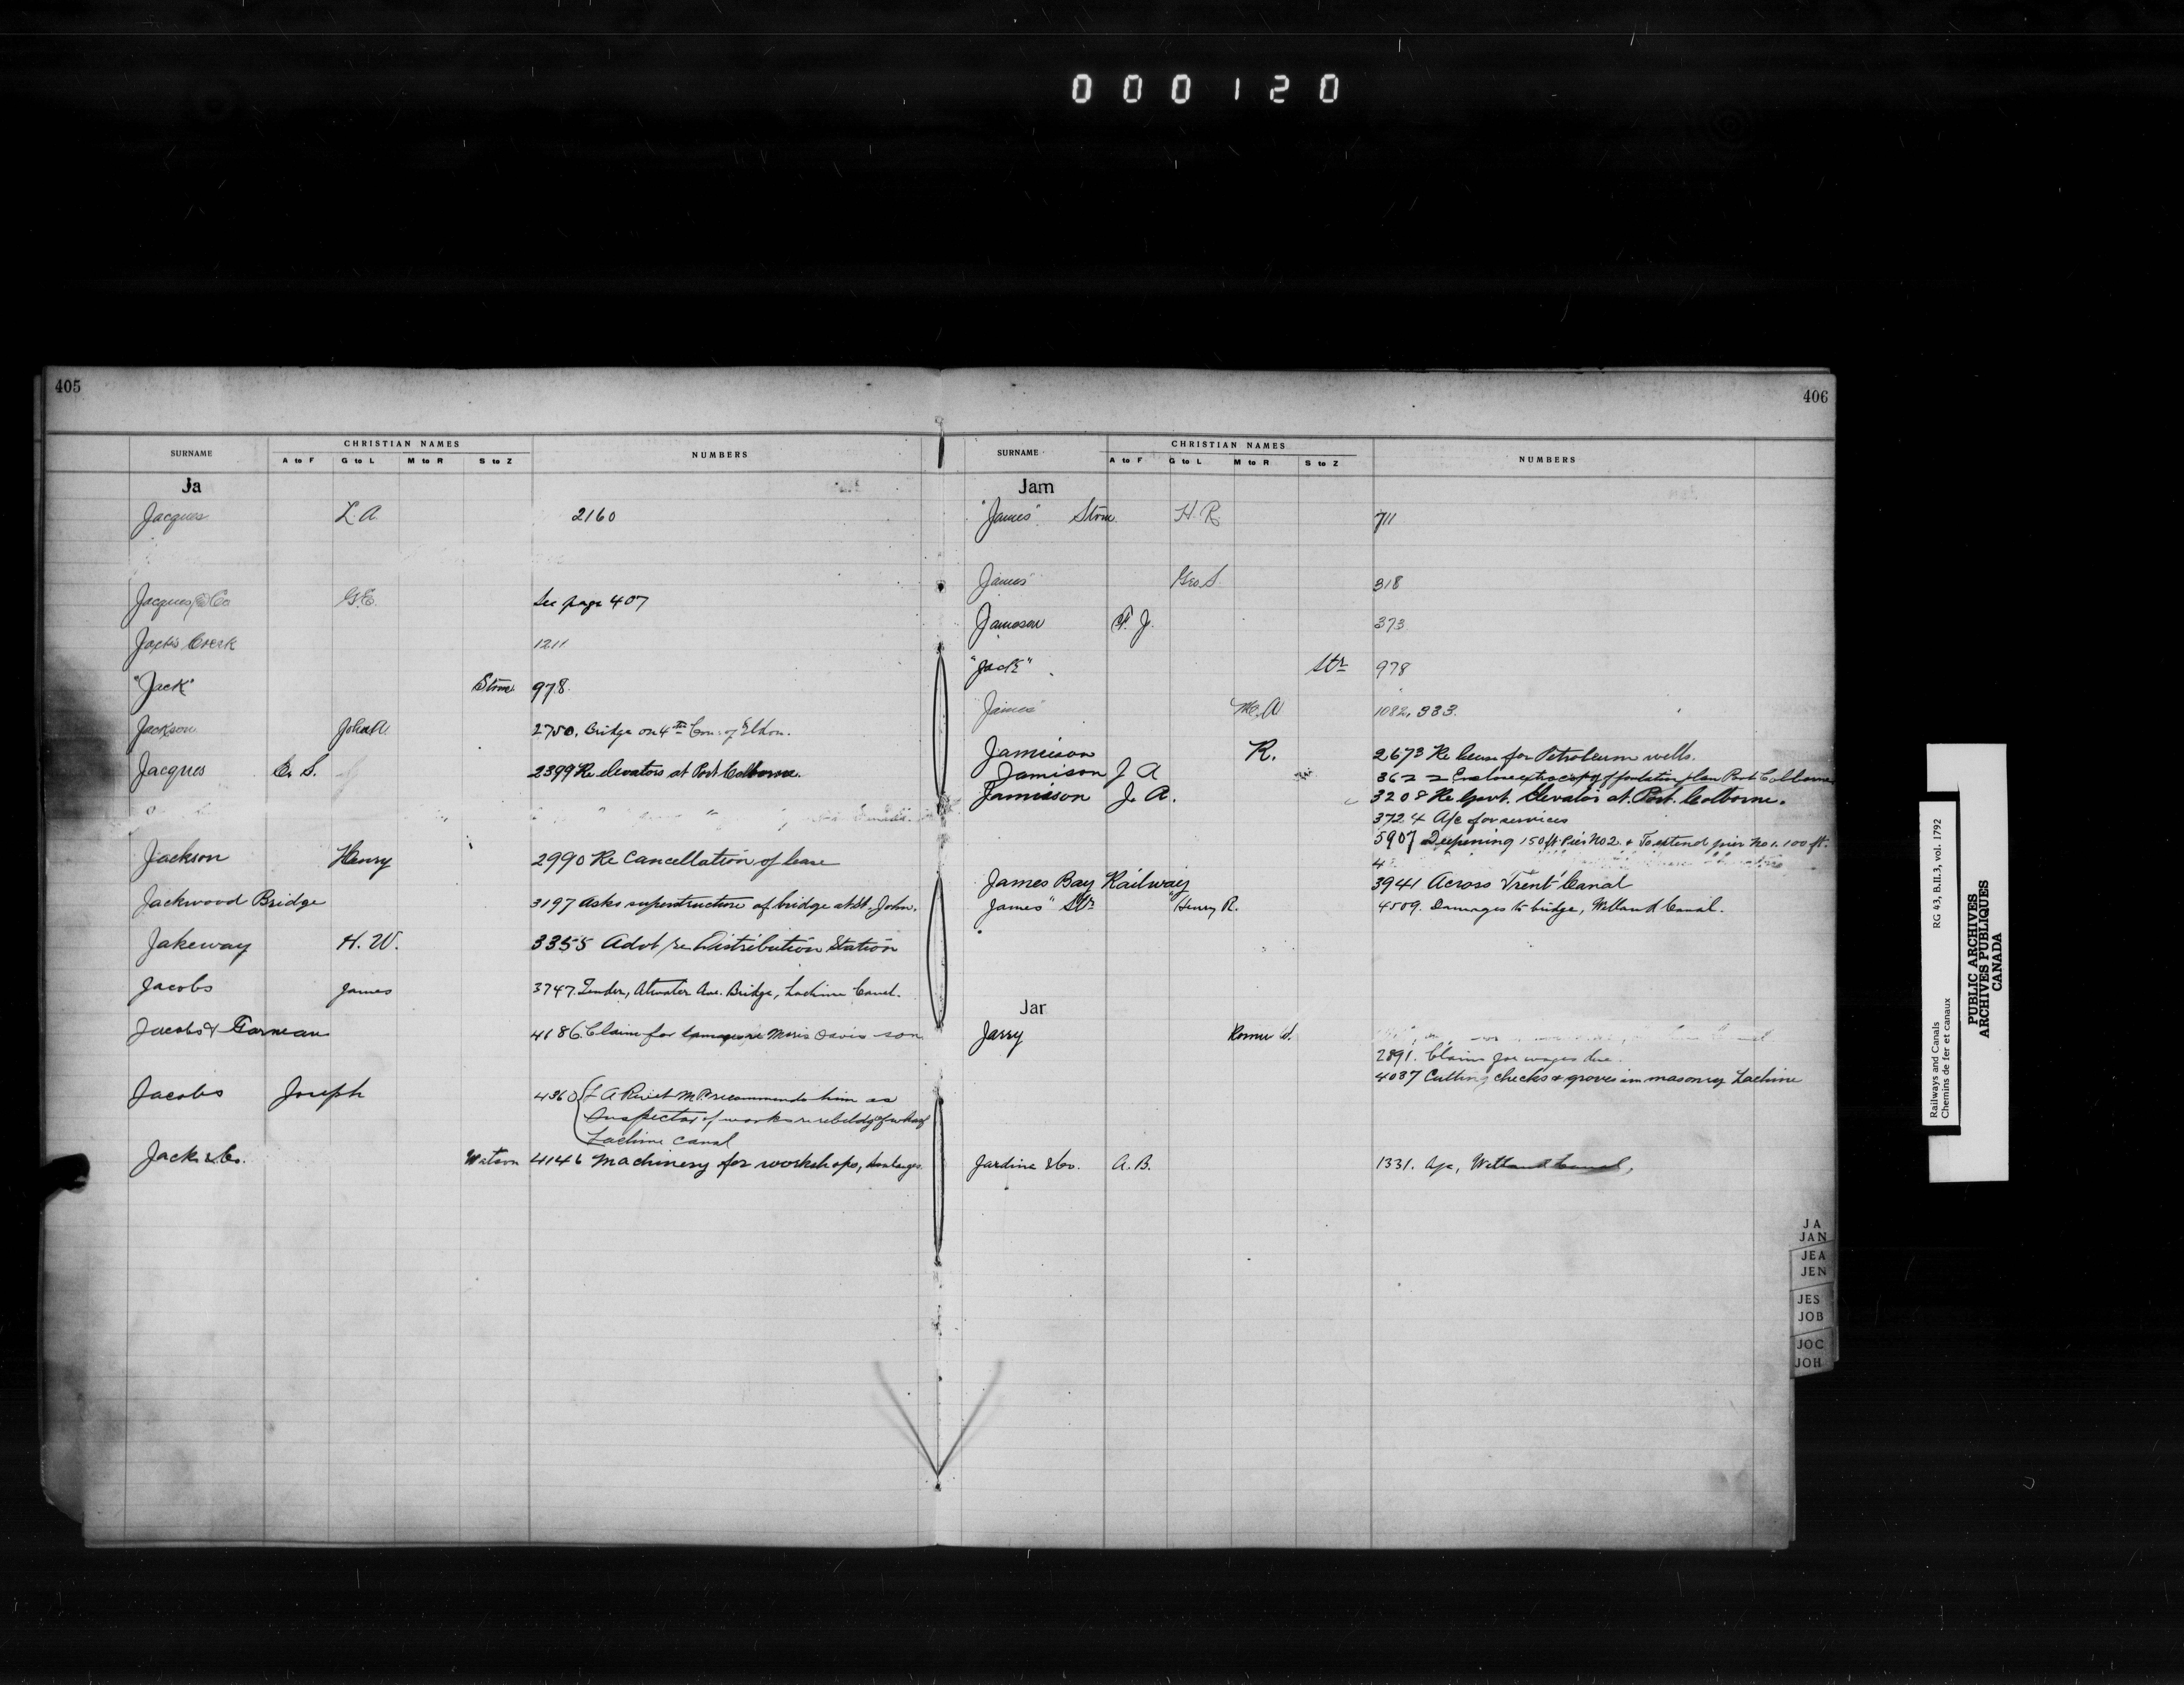 000120
405
SURNAME CHRISTIAN NAMES NUMBERS
A to F G to L M to R S to Z
Ja
Jacques L. A. 2160
Jacques & Co G. E. See page 407
Jack's Creek 1211
"Jack" Stmr. 978
Jackson John A. 2750. Bridge on 4th Con. of Eldon.
Jacques E. S. 2399 Re elevators at Port Colborne.
Jackson Henry 2990 Re Cancellation of lease
Jackwood Bridge 3197 Asks superstructure of bridge at St. John.
Jakeway H. W. 3355 Advt re Distribution Station
Jacobs James 3747. Tender, Atwater Ave. Bridge, Lachine Canal.
Jacobs & Garneau 4186. Claim for damages re Moris Davis son
Jacobs Joseph 4360 L A Rivet M.P. recommends him as
Inspector of works re rebuildg of wharf
Lachine Canal
Jack & Co. Watson 4146 Machinery for workshops, Soulanges.
406
SURNAME CHRISTIAN NAMES NUMBERS
A to F G to L M to R S to Z
Jam
"James" Stmr H. R. 711
James Geo S. 318
Jameson F. J. 373
"Jack" Str 978
James Mc. A 1082, 333.
Jamieson R. 2673 Re lease for Petroleum wells.
Jamison J A 3622 Enclose extra copy of foundation plan Port Colborne
Jamieson J. A. 3208 Re Govt. Elevator at Port Colborne.
3724 A/c for services
5907 Deepening 150 ft Pier No 2. & To extend pier No 1. 100 ft.
James Bay Railway 3941 Across Trent Canal
James" Str "Henry R. 4509. Damages to bridge, Welland Canal.
Jar
Jarry
2891. Claim for wages due.
4037 Cutting checks & groves in masonry Lachine
Jardine & Co. A. B. 1331. A/c, Welland Canal,
JA
JAN
JEA
JEN
JES
JOB
JOC
JOH
Railways and Canals RG 43, B.II.3, vol. 1792
Chemins de fer et canaux
PUBLIC ARCHIVES
ARCHIVES PUBLIQUES
CANADA